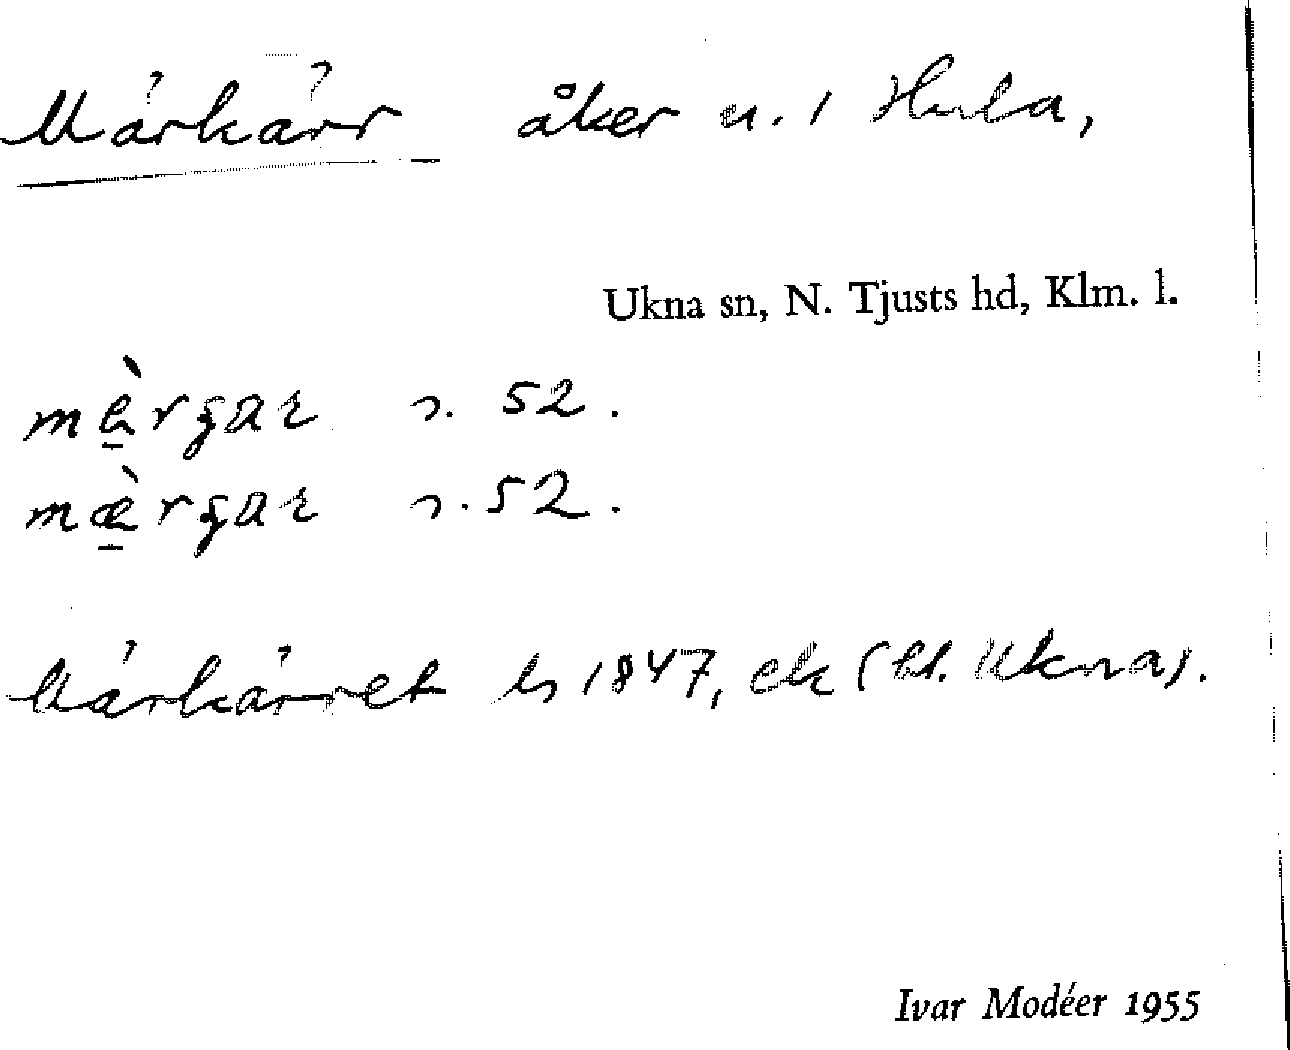 Märkärr åker u. 1 Hula,
Ukna sn, N. Tjusts hd, Klm. l.
mèrgar s. 52.
mæ̀rgar s. 52.
Märkärret ls 1847, ek (bl. Ukna).
Ivar Modéer 1955